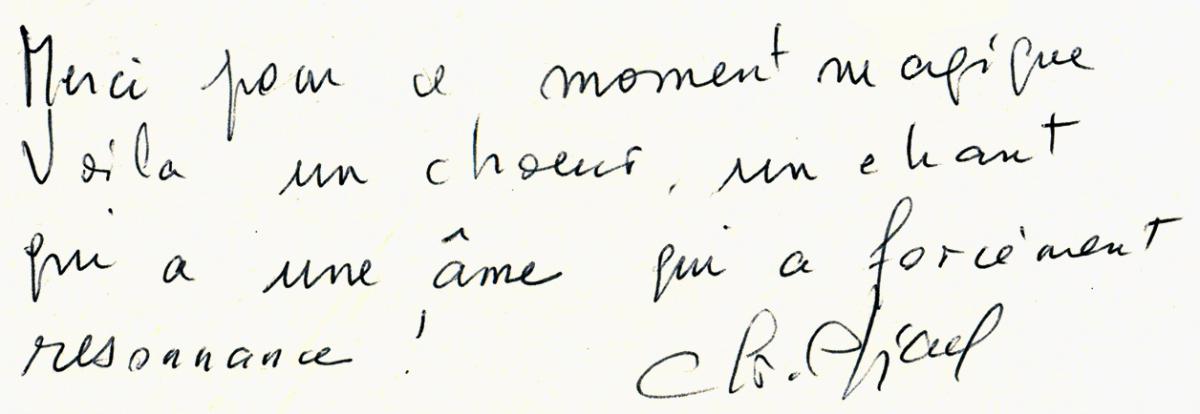 Merci pour ce moment magique
Voila un choeur, un chant
qui a une âme qui a forcément
resonnance !